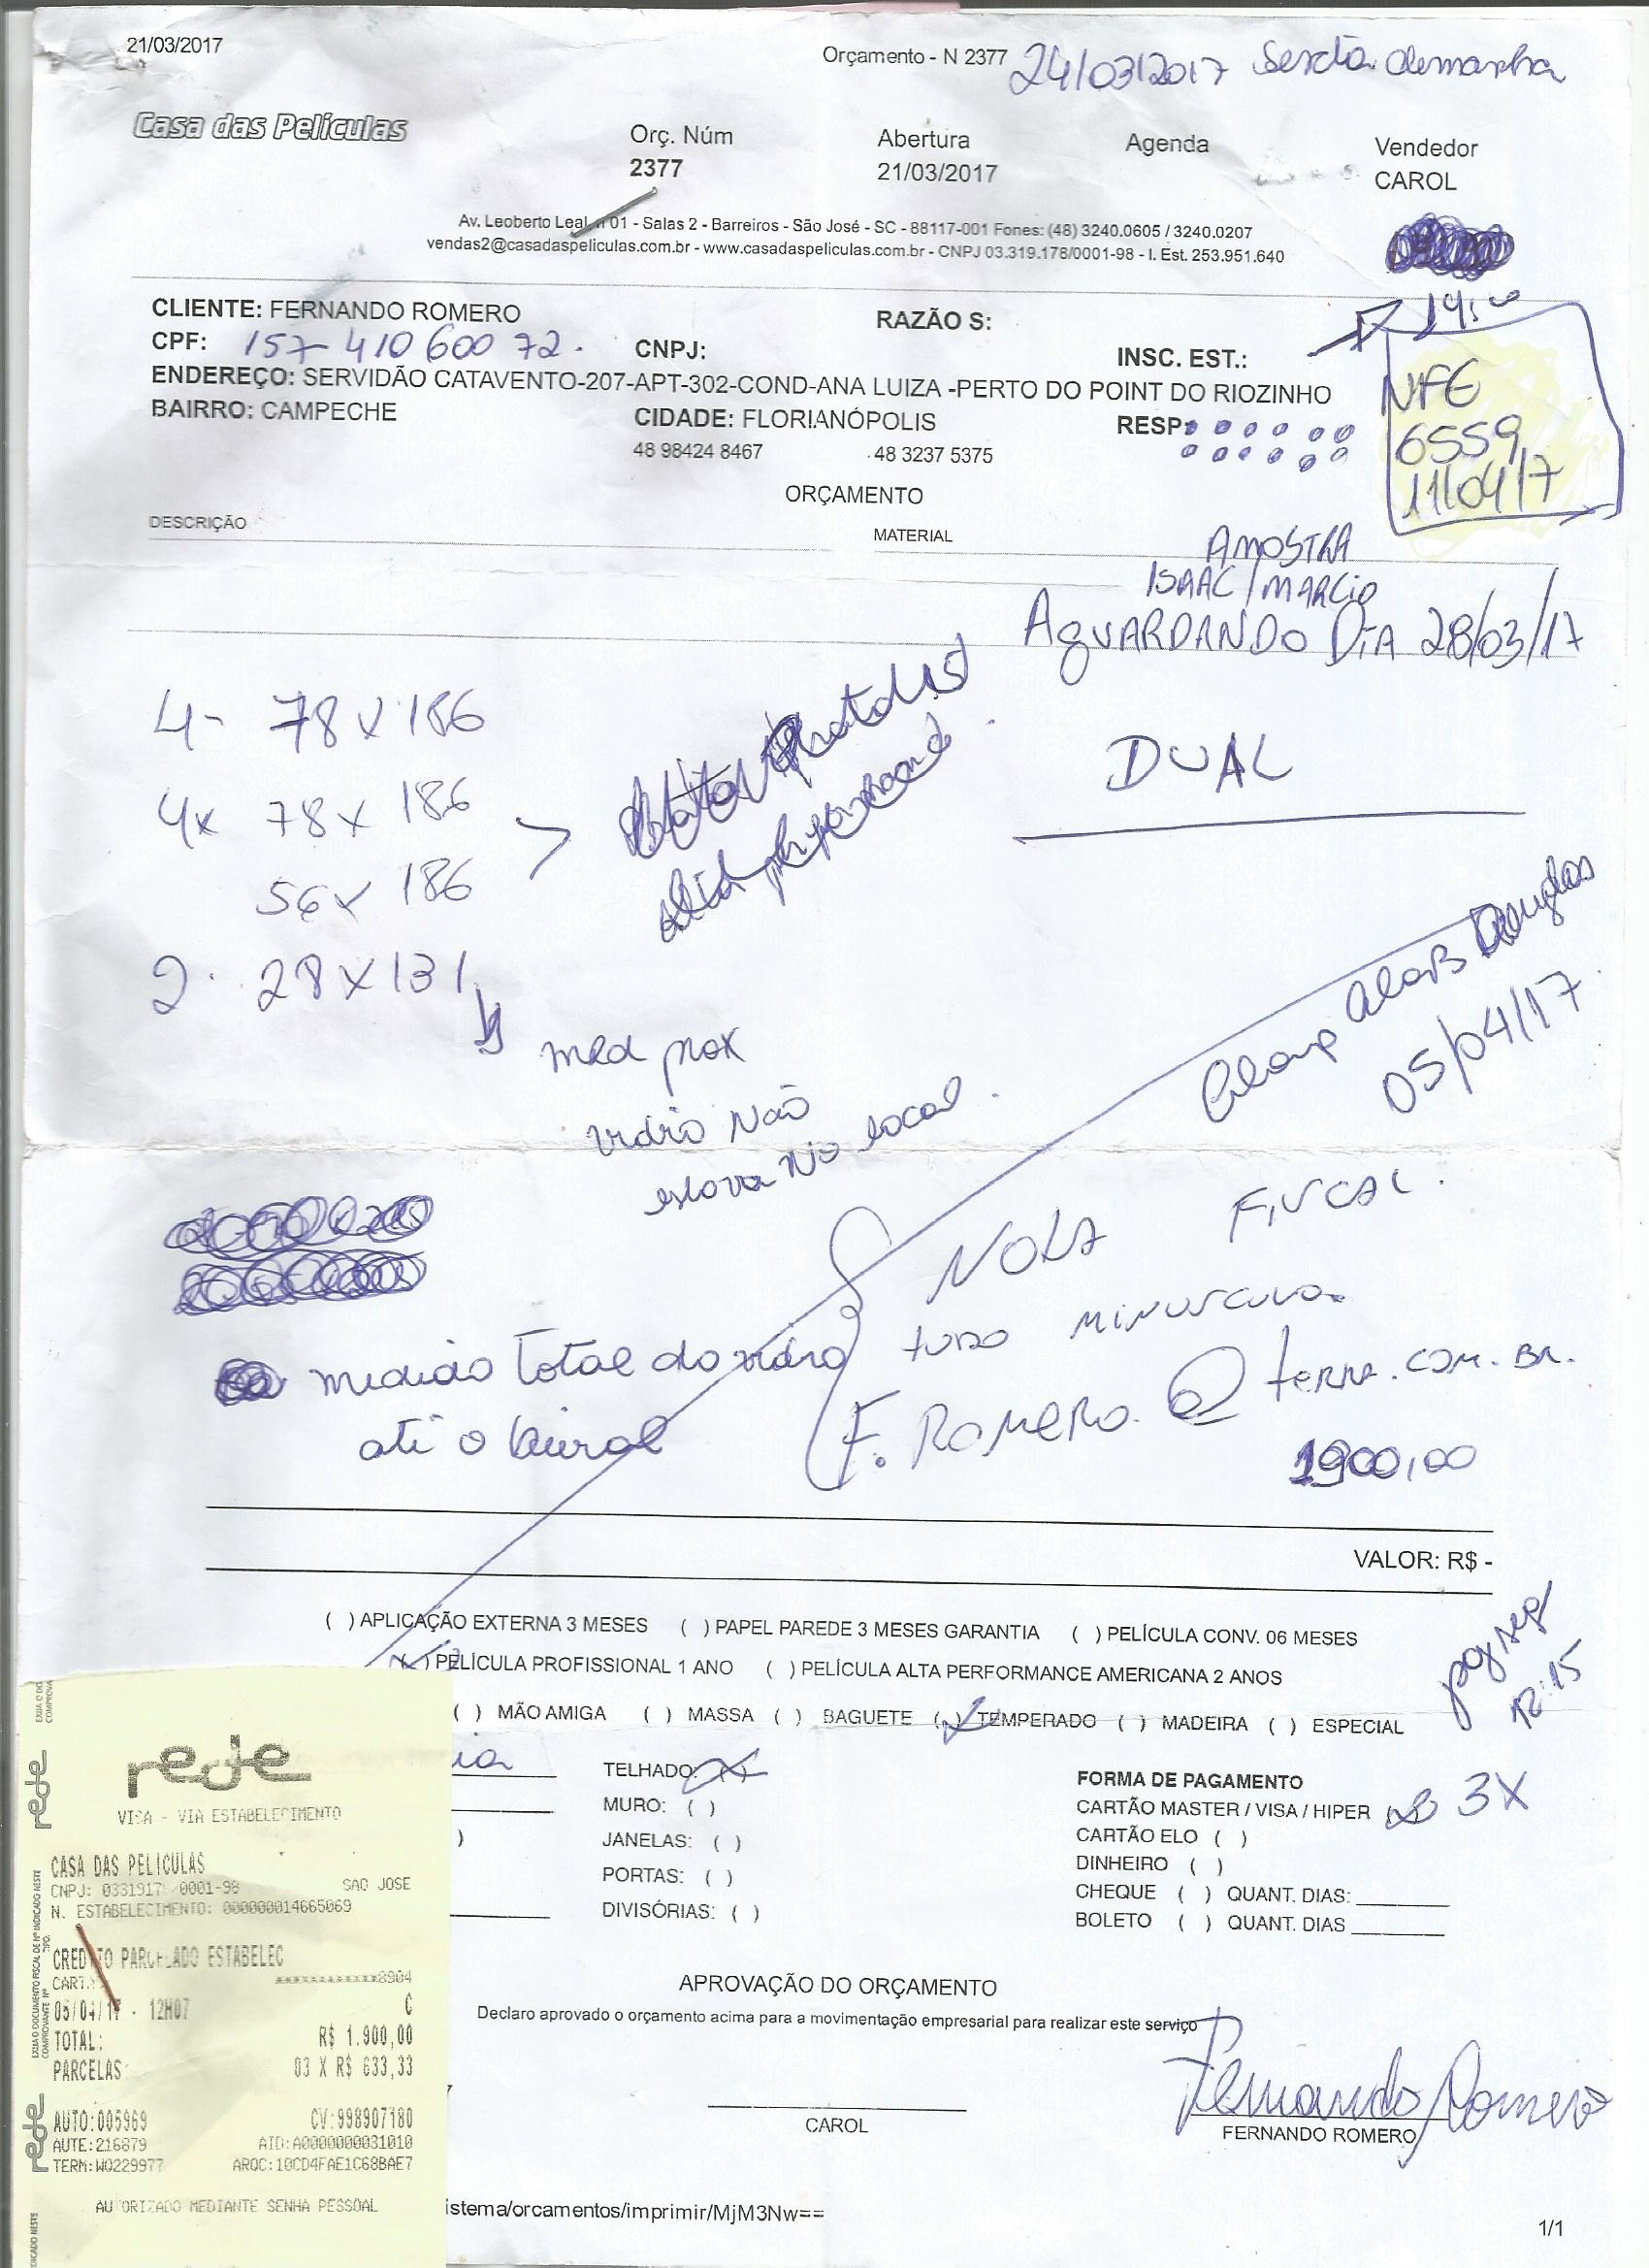 21/03/2017
Orçamento - N 2377 24/03/2017 sexta de manha
Casa das Películas
Orç. Núm
2377
Abertura
21/03/2017
Agenda
Vendedor
CAROL
Av. Leoberto Leal, n 01 - Salas 2 - Barreiros - São José - SC - 88117-001 Fones: (48) 3240.0605 / 3240.0207
vendas2@casadaspeliculas.com.br - www.casadaspeliculas.com.br - CNPJ 03.319.178/0001-98 - I. Est. 253.951.640
CLIENTE: FERNANDO ROMERO
RAZÃO S:
CPF: 157 410 600 72.
CNPJ:
INSC. EST.:
ENDEREÇO: SERVIDÃO CATAVENTO-207-APT-302-COND-ANA LUIZA -PERTO DO POINT DO RIOZINHO
BAIRRO: CAMPECHE
CIDADE: FLORIANÓPOLIS
RESP:
48 98424 8467
48 3237 5375
NFE
6559
11/04/17
ORÇAMENTO
DESCRIÇÃO
MATERIAL
AMOSTRA
ISAAC / MARCIO
AGUARDANDO DIA 28/03/17
4- 78 x 186
4x 78 x 186
56 x 186
2. 28 x 131
DUAL
Douglas
05/04/17
med prox
vidro Não
estava No local.
NOTA FISCAL.
TUDO MINUSCULO.
F.ROMERO.@terra.COM.BR.
medição Total do vidro
até o beiral
1900,00
VALOR: R$ -
( ) APLICAÇÃO EXTERNA 3 MESES ( ) PAPEL PAREDE 3 MESES GARANTIA ( ) PELÍCULA CONV. 06 MESES
( ) PELÍCULA PROFISSIONAL 1 ANO ( ) PELÍCULA ALTA PERFORMANCE AMERICANA 2 ANOS
( ) MÃO AMIGA ( ) MASSA ( ) BAGUETE ( ) TEMPERADO ( ) MADEIRA ( ) ESPECIAL
pagseg
12:15
TELHADO: ( )
MURO: ( )
JANELAS: ( )
PORTAS: ( )
DIVISÓRIAS: ( )
FORMA DE PAGAMENTO
CARTÃO MASTER / VISA / HIPER ( ) 3X
CARTÃO ELO ( )
DINHEIRO ( )
CHEQUE ( ) QUANT. DIAS:
BOLETO ( ) QUANT. DIAS
APROVAÇÃO DO ORÇAMENTO
Declaro aprovado o orçamento acima para a movimentação empresarial para realizar este serviço
Fernando Romero
CAROL
FERNANDO ROMERO
istema/orcamentos/imprimir/MjM3Nw==
1/1
rede
VISA - VIA ESTABELECIMENTO
CASA DAS PELICULAS
CNPJ: 0331917 /0001-98 SAO JOSE
N. ESTABELECIMENTO: 000000014665069
CREDITO PARCELADO ESTABELEC
CART. ************8904
05/04/17 - 12H07 C
TOTAL: R$ 1.900,00
PARCELAS: 03 X R$ 633,33
AUTO:005969 CV:998907180
AUTE:216879 AID:A0000000031010
TERM:W0229977 ARQC:10CD4FAE1C68BAE7
AUTORIZADO MEDIANTE SENHA PESSOAL